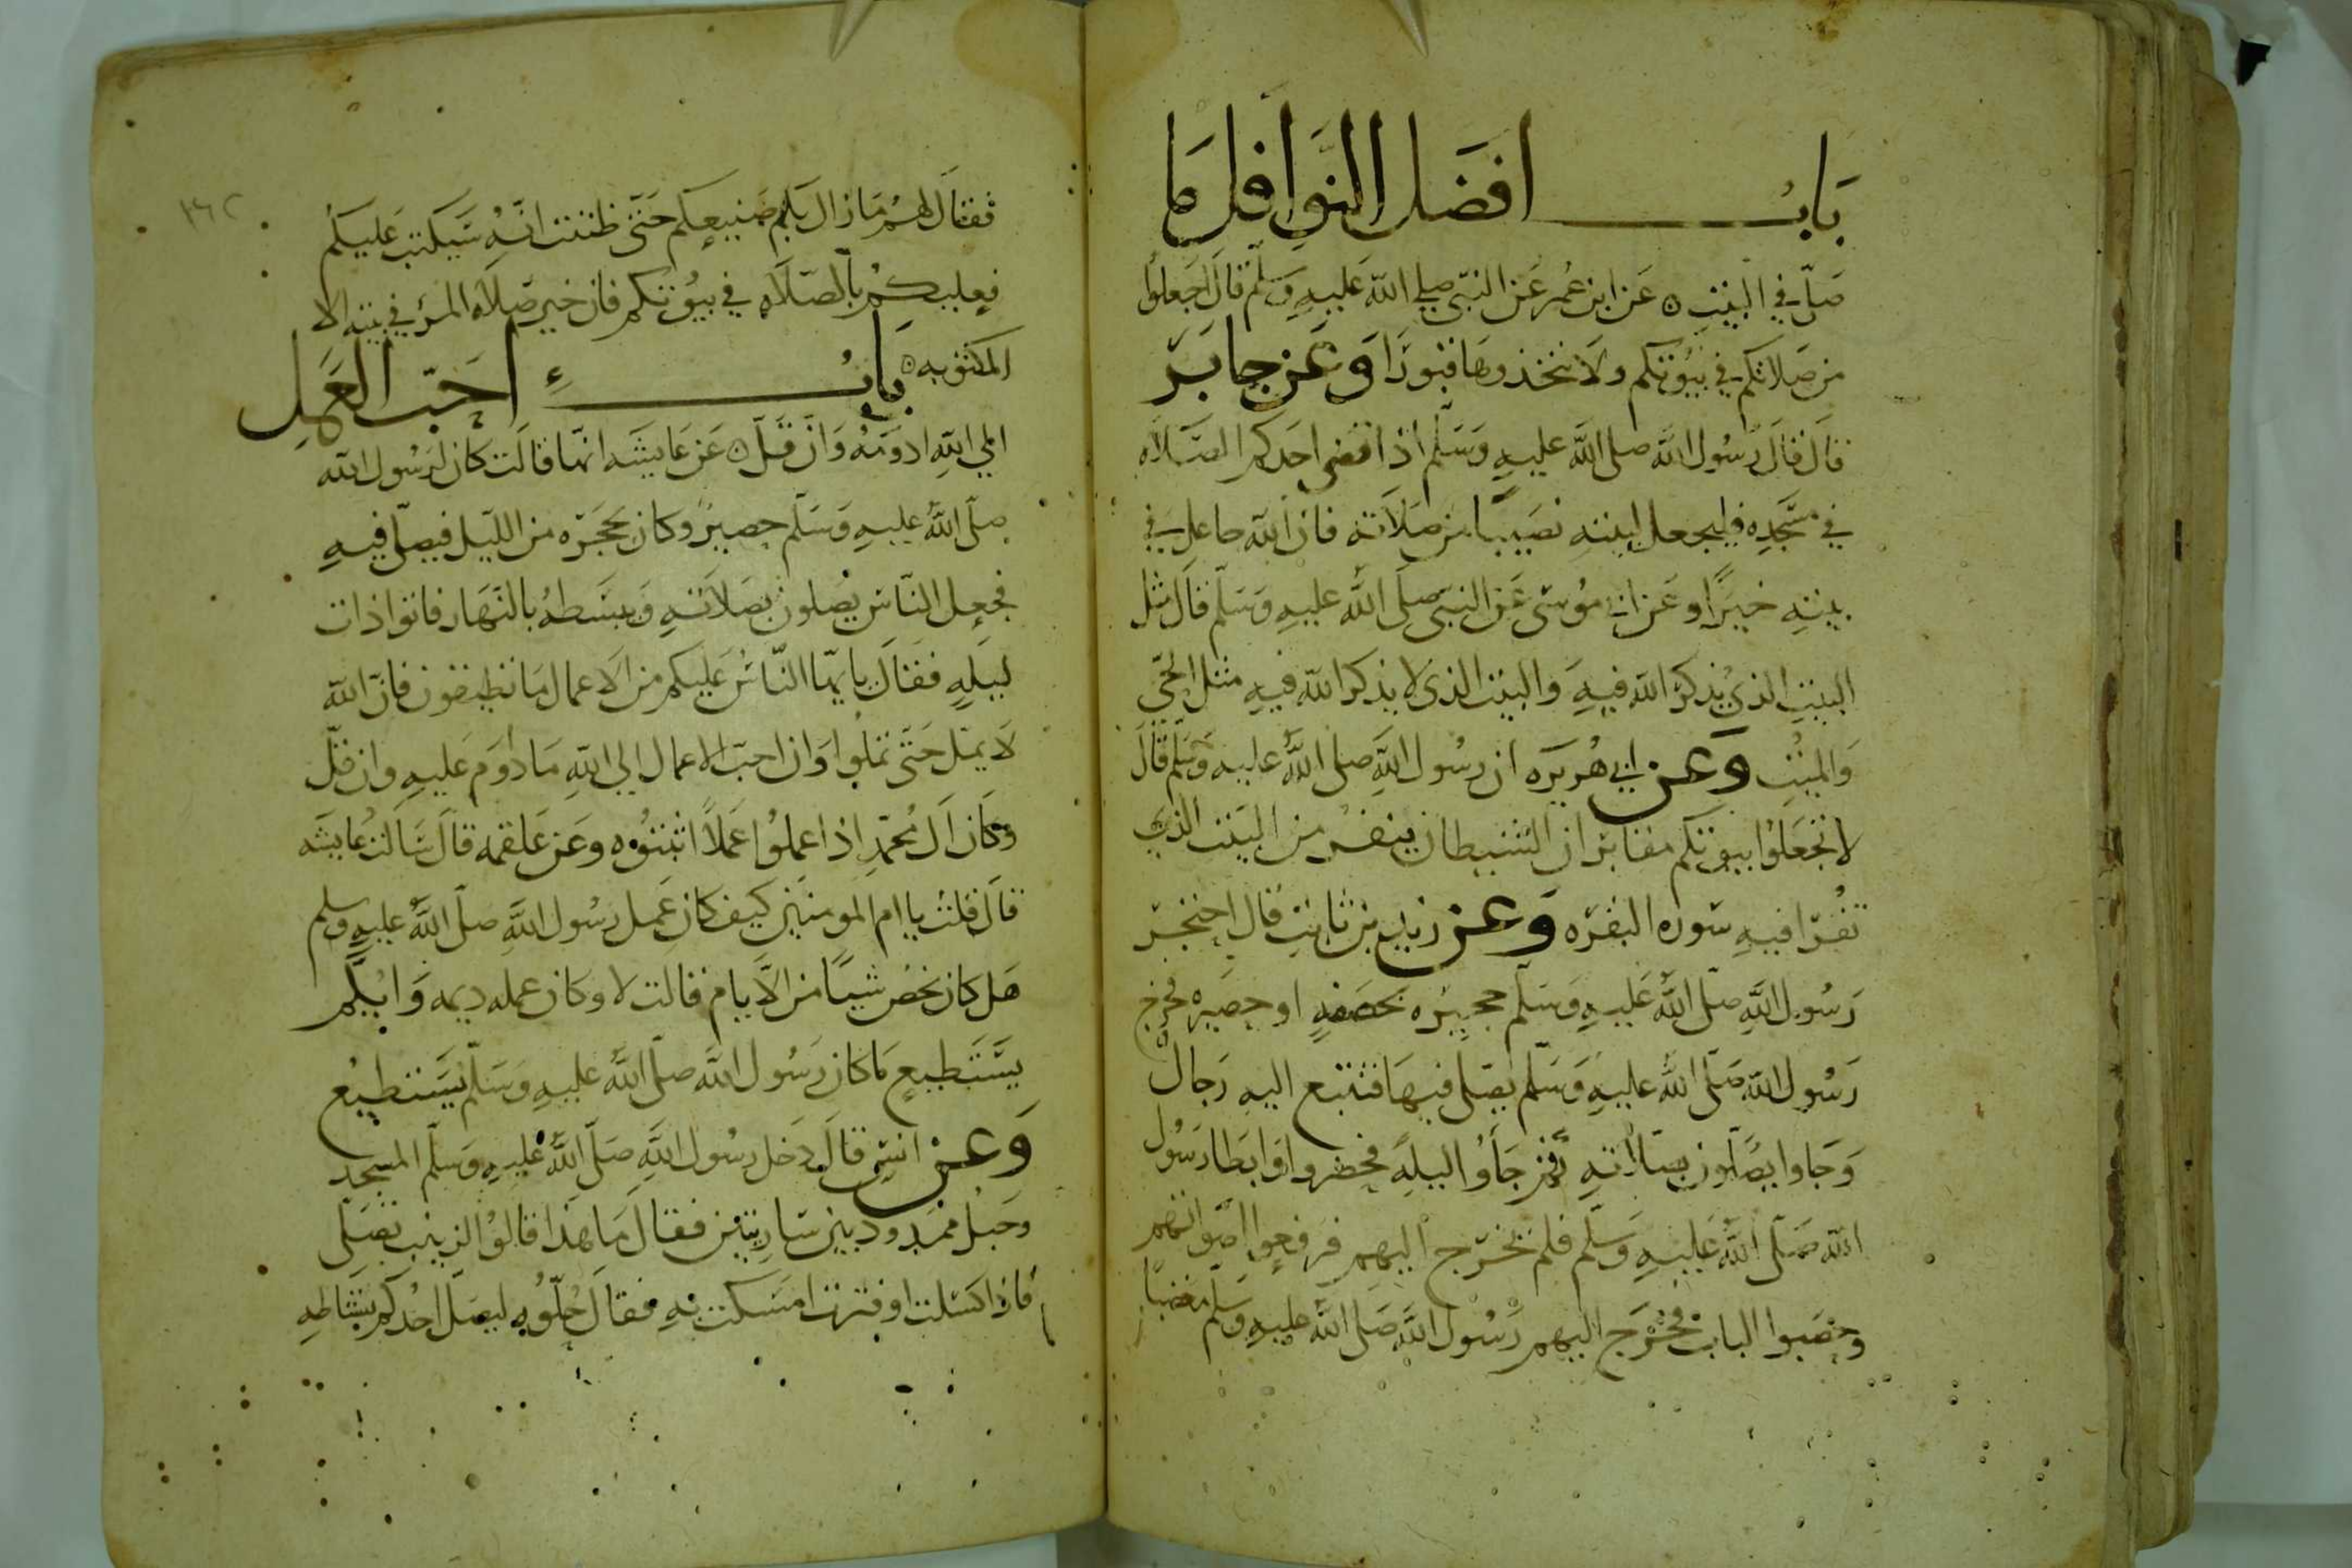 باب افضل النوافل ما
صلي في البيت ٥ عن ابن عمر عن النبي صلي الله عليه وسلم قال اجعلوا
من صلاتكم في بيوتكم ولا تتخذوها قبورا وعن جابر
قال قال رسول الله صلى الله عليه وسلم اذا قضى احدكم الصلاه
في مسجده فليجعل لبيته نصيبا من صلاته فان الله جاعل في
بيته خيرا وعن ابي موسى عن النبي صلى الله عليه وسلم قال مثل
البيت الذي يذكر الله فيه والبيت الذي لا يذكر الله فيه مثل الحي
والميت وعن ابي هريره ان رسول الله صلى الله عليه وسلم قال
لا تجعلوا بيوتكم مقابر ان الشيطان ينفر من البيت الذي
تقرا فيه سوره البقره وعن زيد بن ثابت قال احتجر
رسول الله صلى الله عليه وسلم حجيره بخصفه او حصيره فخرج
رسول الله صلى الله عليه وسلم يصلى فيها فتتبع اليه رجال
وجاوا يصلون بصلاته ثم جاوا ليله فحضروا وابطا رسول
الله صلى الله عليه وسلم فلم يخرج اليهم فرفعوا اصواتهم
وحصبوا الباب فخرج اليهم رسول الله صلى الله عليه وسلم مغضبا
فقال لهم ما زال بكم صنيعكم حتى ظننت انه سيكتب عليكم
فعليكم بالصلاه في بيوتكم فان خير صلاه المرء في بيته الا
المكتوبه ٥ باب احب العمل
الي الله ادومه وان قل ٥ عن عايشه انها قالت كان لرسول الله
صلى الله عليه وسلم حصير وكان يحجره من الليل فيصلى فيه
فجعل الناس يصلون بصلاته ويبسطه بالنهار فاتوا ذات
ليله فقال يايها الناس عليكم من الاعمال ما تطيقون فان الله
لا يمل حتى تملوا وان احب الاعمال الي الله ما دووم عليه وان قل
وكان ال محمد اذا عملوا عملا اثبتوه وعن علقمه قال سالت عايشه
قال قلت يا ام المومنين كيف كان عمل رسول الله صلى الله عليه وسلم
هل كان يخص شيا من الايام قالت لا وكان عمله ديمه وايكم
يستطيع ما كان رسول الله صلى الله عليه وسلم يستطيع
وعن انس قال دخل رسول الله صلى الله عليه وسلم المسجد
وحبل ممدود بين ساريتين فقال ما هذا قالوا لزينب تصلى
فاذا كسلت او فترت امسكت به فقال حلوه ليصل احدكم نشاطه